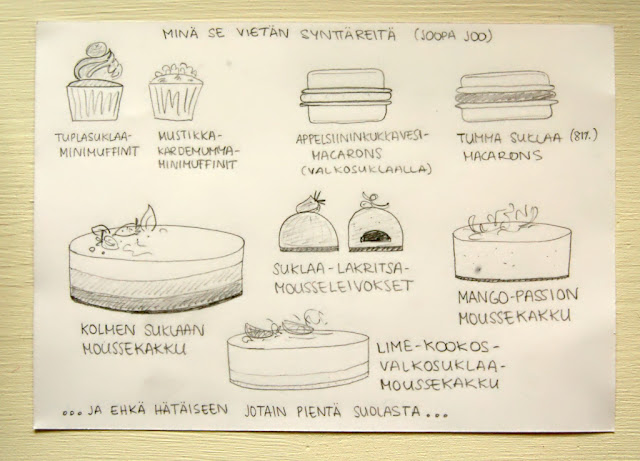 MINÄ SE VIETÄN SYNTTÄREITÄ (JOOPA JOO)
TUPLASUKLAA-
MINIMUFFINIT
MUSTIKKA-
KARDEMUMMA-
MINIMUFFINIT
APPELSIININKUKKAVESI-
MACARONS
(VALKOSUKLAALLA)
TUMMA SUKLAA (81%.)
MACARONS
KOLMEN SUKLAAN
MOUSSEKAKKU
SUKLAA-LAKRITSA-
MOUSSELEIVOKSET
MANGO-PASSION
MOUSSEKAKKU
LIME-KOOKOS-
VALKOSUKLAA-
MOUSSEKAKKU
...JA EHKÄ HÄTÄISEEN JOTAIN PIENTÄ SUOLASTA...